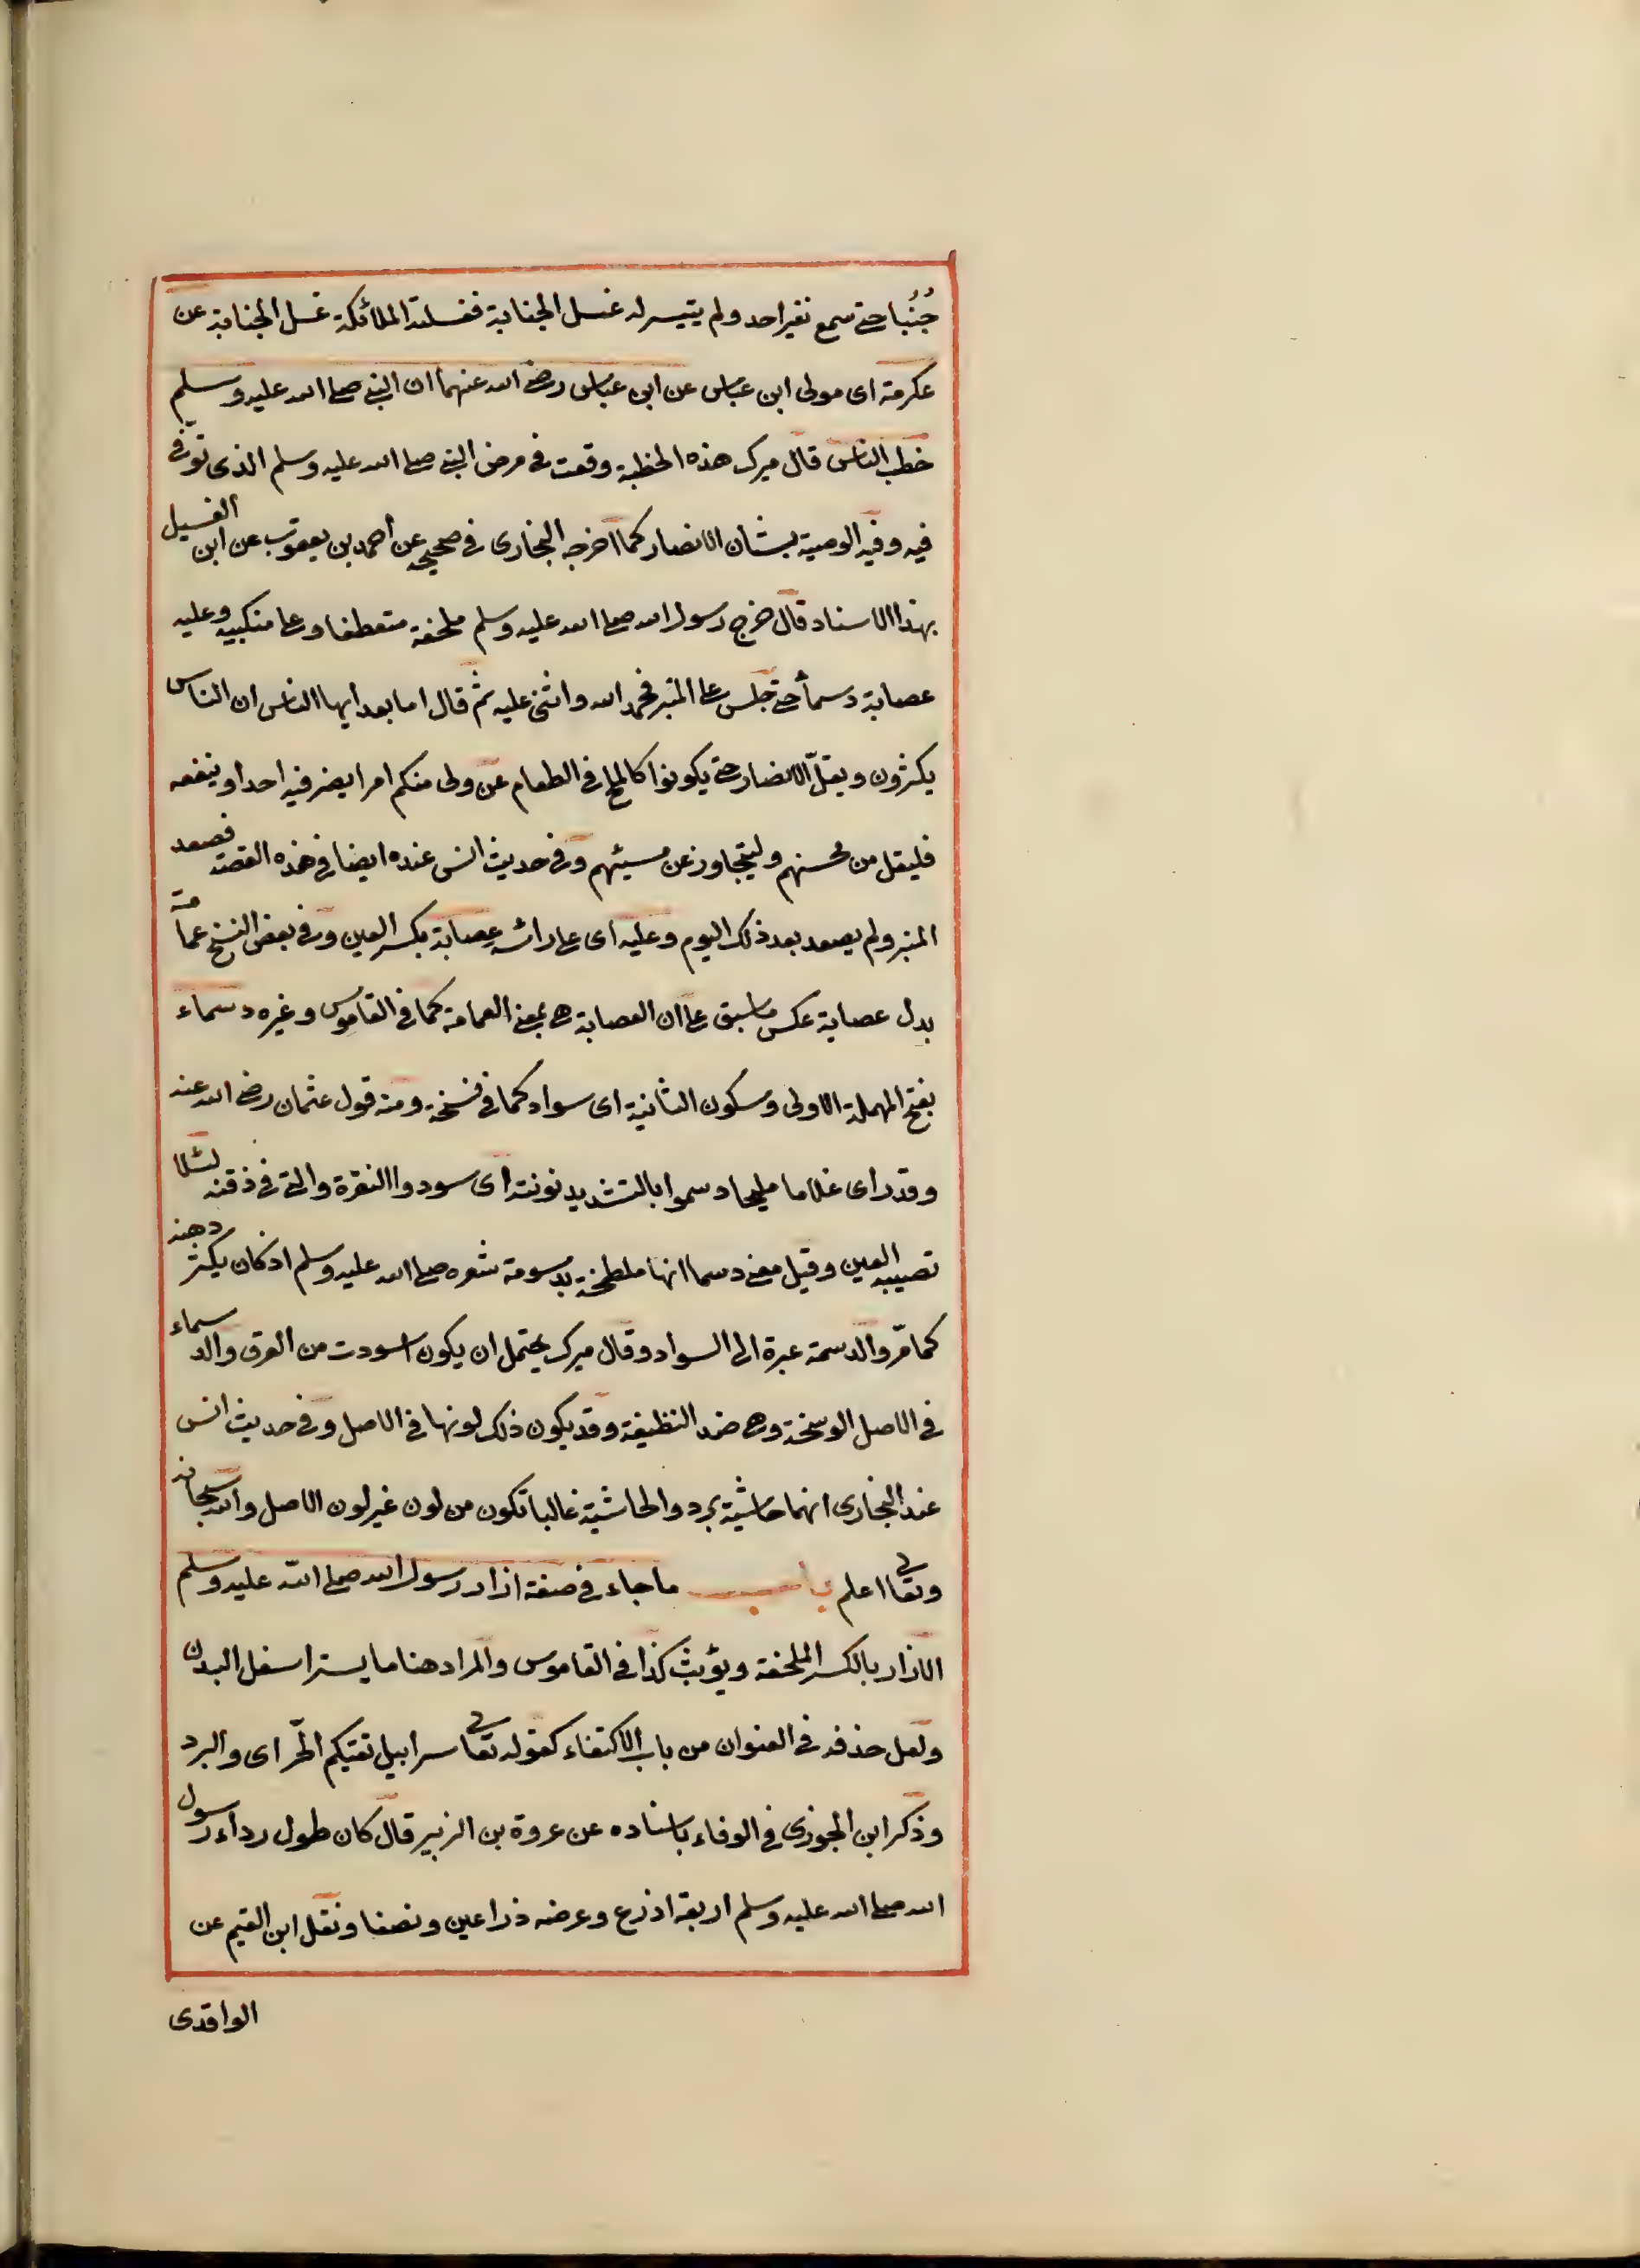 جُنُبا حتى سمع نفير احد ولم يتيسر له غسل الجنابة فغسلته الملائكة غسل الجنابة عن
عكرمة اى مولى ابن عباس عن ابن عباس رضى الله عنهما ان النبى صلى الله عليه وسلم
خطب الناس قال ميرك هذه الخطبة وقعت فى مرض النبى صلى الله عليه وسلم الذى توفى
فيه وفيه الوصية بشان الانصار كما اخرجه البخارى فى صحيحه عن احمد بن يعقوب عن ابن الغسيل
بهذا الاسناد قال خرج رسول الله صلى الله عليه وسلم ملحفة متعطفا وعلى منكبيه وعليه
عصابة دسمأ حتى جلس على المنبر فحمد الله واثنى عليه ثم قال اما بعد ايها الناس ان الناس
يكثرون ويقلّ الانصار حتى يكونوا كالملح فى الطعام عن ولى منكم امرا يضر فيه احدا وينفعه
فليقل من محسنهم وليتجاوز عن مسيئهم وفى حديث انس عنده ايضا فى هذه القصة فصعد
المنبر ولم يصعد بعد ذلك اليوم وعليه اى على راسه عِصابة بكسر العين وفى بعض النسخ عمامة
بدل عصابة عكس ماسبق على ان العصابة هى بمعنى العمامة كما فى القاموس وغيره دسماء
بفتح المهملة الاولى وسكون الثانية اى سواد كما فى نسخة ومنه قول عثمان رضى الله عنه
وقد راى غلاما مليحا دسموا بالتشديد نونته اى سودوا النقرة والتى فى ذقنه لئلا
تصيبه العين وقيل معنى دسما انها ملطخة بدسومة شعره صلى الله عليه وسلم اذ كان يكثر دهنه
كما مرّ والدسمة عبرة الى السواد وقال ميرك يحتمل ان يكون اسودت من العرق والدسماء
فى الاصل الوسخة وهى ضد النظيفة وقد يكون ذلك لونها فى الاصل وفى حديث انس
عند البخارى انهما حاشية برد والحاشية غالبا تكون من لون غير لون الاصل والله سبحانه
وتعالى اعلم باب ماجاء فى صفة ازار رسول الله صلى الله عليه وسلم
الازار بالكسر الملحفة ويؤنث كذا فى القاموس والمراد هنا ما يستر اسفل البدن
ولعل حذفه فى العنوان من باب الاكتفاء كقوله تعالى سرابيل تقيكم الحّر اى والبرد
وذكر ابن الجوزى فى الوفاء باسناده عن عروة بن الزبير قال كان طول رداء رسول
الله صلى الله عليه وسلم اربعة اذرع وعرضه ذراعين ونصفا ونقل ابن القيم عن
الواقدى